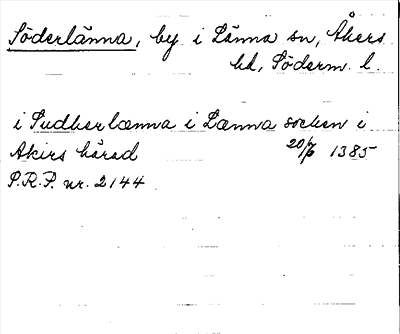 Söderlänna, by i Länna sn, Åkers
hd, Söderm. l.
i Sudherlænna i Lænna socken i
Akirs härad 20/6 1385
P.R.P. nr. 2144